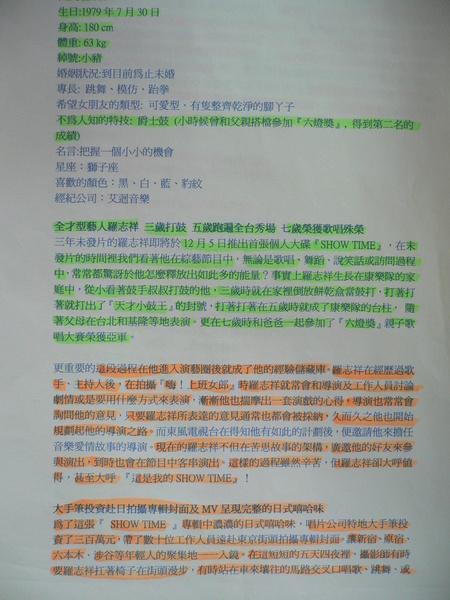 生日:1979 年 7 月 30 日
身高: 180 cm
體重: 63 kg
綽號:小豬
婚姻狀況:到目前爲止未婚
專長: 跳舞、模仿、跆拳
希望女朋友的類型: 可愛型、有隻整齊乾淨的腳丫子
不爲人知的特技: 爵士鼓 (小時候曾和父親搭檔參加『六燈獎』, 得到第二名的
成績)
名言:把握一個小小的機會
星座：獅子座
喜歡的顏色：黑、白、藍、豹紋
經紀公司：艾迴音樂
全才型藝人羅志祥 三歲打鼓 五歲跑遍全台秀場 七歲榮獲歌唱殊榮
三年未發片的羅志祥即將於 12 月 5 日推出首張個人大碟『SHOW TIME』，在未
發片的時間裡我們看著他在綜藝節目中，無論是歌唱、舞蹈、說笑話或訪問過程
中，常常都驚訝於他怎麼釋放出如此多的能量？事實上羅志祥生長在康樂隊的家
庭中，從小看著鼓手叔叔打鼓的他，三歲時就在家裡倒放餅乾盒當鼓打，打著打
著就打出了『天才小鼓王』的封號，打著打著在五歲時就成了康樂隊的台柱， 隨
著父母在台北和基隆等地表演。更在七歲時和爸爸一起參加了『六燈獎』親子歌
唱大賽榮獲亞軍。
更重要的這段過程在他進入演藝圈後就成了他的經驗儲藏庫。羅志祥在經歷過歌
手、主持人後，在拍攝『嗨！上班女郎』時羅志祥就常會和導演及工作人員討論
劇情或是要用什麼方式來表演，漸漸他也揣摩出一套演戲的心得，導演也常常會
詢問他的意見，只要羅志祥所表達的意見通常也都會被採納，久而久之他也開始
規劃起他的導演之路。而東風電視台在得知他有如此的計劃後，便邀請他來擔任
音樂愛情故事的導演。現在的羅志祥不但在苦思故事的架構，廣邀他的好友來參
與演出，到時也會在節目中客串演出。這樣的過程雖然辛苦，但羅志祥卻大呼値
得，甚至大呼『這是我的 SHOW TIME』！
大手筆投資赴日拍攝專輯封面及 MV 呈現完整的日式嘻哈味
爲了這張『 SHOW TIME 』專輯中濃濃的日式嘻哈味，唱片公司特地大手筆投
資了三百萬元，帶了數十位工作人員遠赴東京街頭拍攝專輯封面。讓新宿、原宿、
六本木、涉谷等年輕人的聚集地一一入鏡。在這短短的五天四夜裡，攝影師有時
要羅志祥扛著椅子在街頭漫步，有時站在車來壤往的馬路交叉口唱歌、跳舞、或